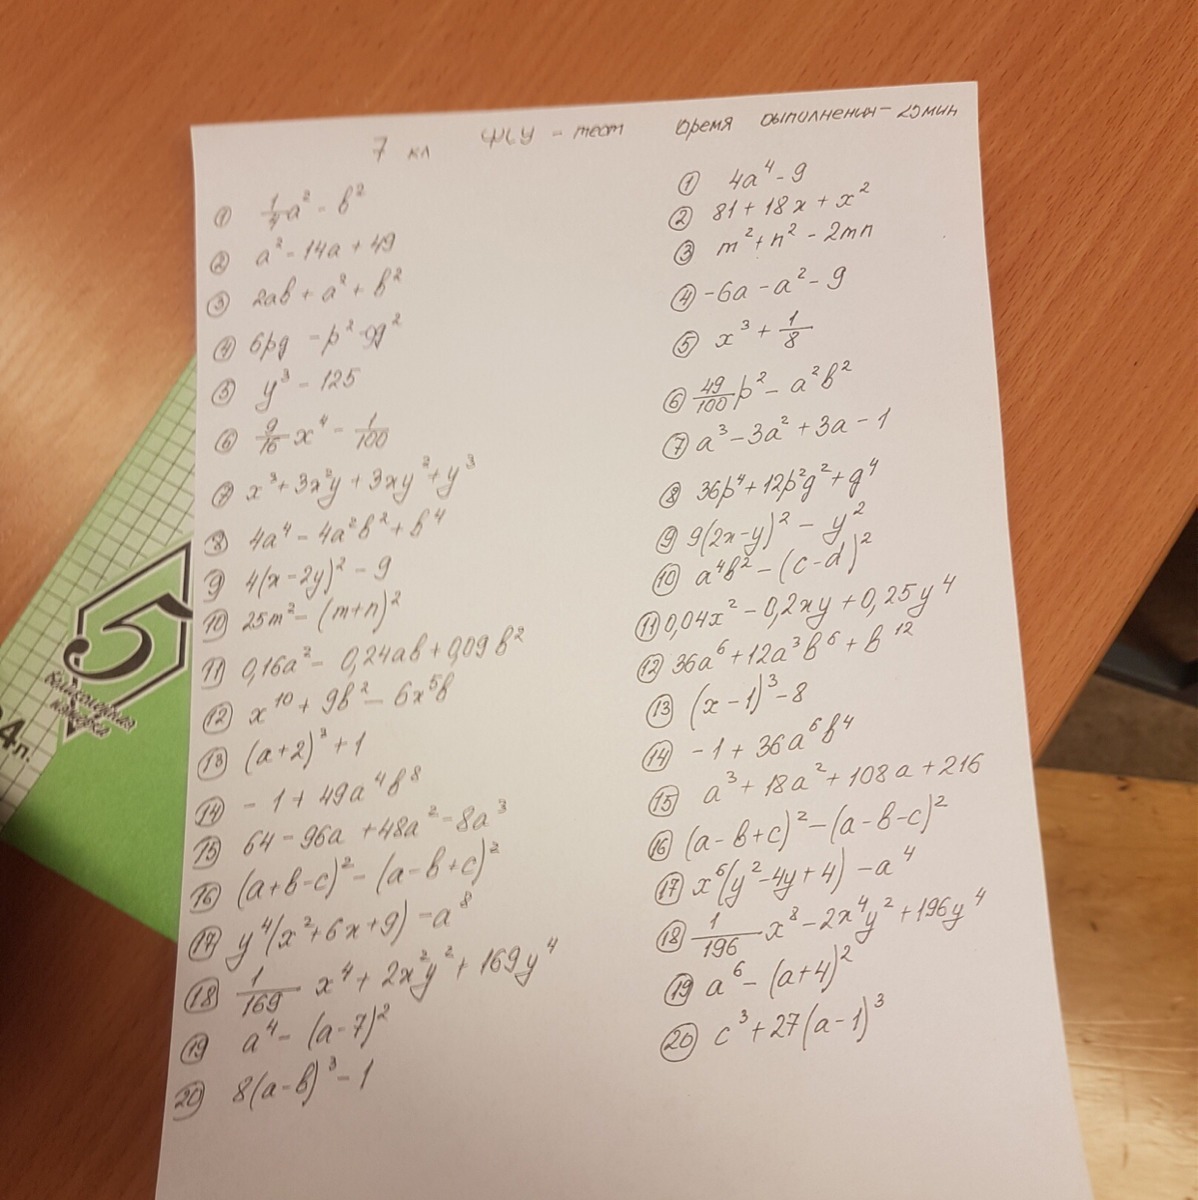 7 кл ФСУ - тест Время выполнения - 25 мин
① 1/4 a² - b²
② a² - 14a + 49
③ 2ab + a² + b²
④ 6pq - p² - 9q²
⑤ y³ - 125
⑥ 9/16 x⁴ - 1/100
⑦ x³ + 3x²y + 3xy² + y³
⑧ 4a⁴ - 4a²b² + b⁴
⑨ 4(x - 2y)² - 9
⑩ 25m² - (m+n)²
⑪ 0,16a² - 0,24ab + 0,09b²
⑫ x¹⁰ + 9b² - 6x⁵b
⑬ (a+2)³ + 1
⑭ - 1 + 49a⁴b⁸
⑮ 64 - 96a + 48a² - 8a³
⑯ (a+b-c)² - (a-b+c)²
⑰ y⁴(x² + 6x + 9) - a⁸
⑱ 1/169 x⁴ + 2x²y² + 169y⁴
⑲ a⁴ - (a-7)²
⑳ 8(a-b)³ - 1
① 4a⁴ - 9
② 81 + 18x + x²
③ m² + n² - 2mn
④ -6a - a² - 9
⑤ x³ + 1/8
⑥ 49/100 p² - a²b²
⑦ a³ - 3a² + 3a - 1
⑧ 36p⁴ + 12p²q² + q⁴
⑨ 9(2x-y)² - y²
⑩ a⁴b² - (c-d)²
⑪ 0,04x² - 0,2xy + 0,25y⁴
⑫ 36a⁶ + 12a³b⁶ + b¹²
⑬ (x-1)³ - 8
⑭ - 1 + 36a⁶b⁴
⑮ a³ + 18a² + 108a + 216
⑯ (a-b+c)² - (a-b-c)²
⑰ x⁶(y² - 4y + 4) - a⁴
⑱ 1/196 x⁸ - 2x⁴y² + 196y⁴
⑲ a⁶ - (a+4)²
⑳ c³ + 27(a-1)³
5
4л.